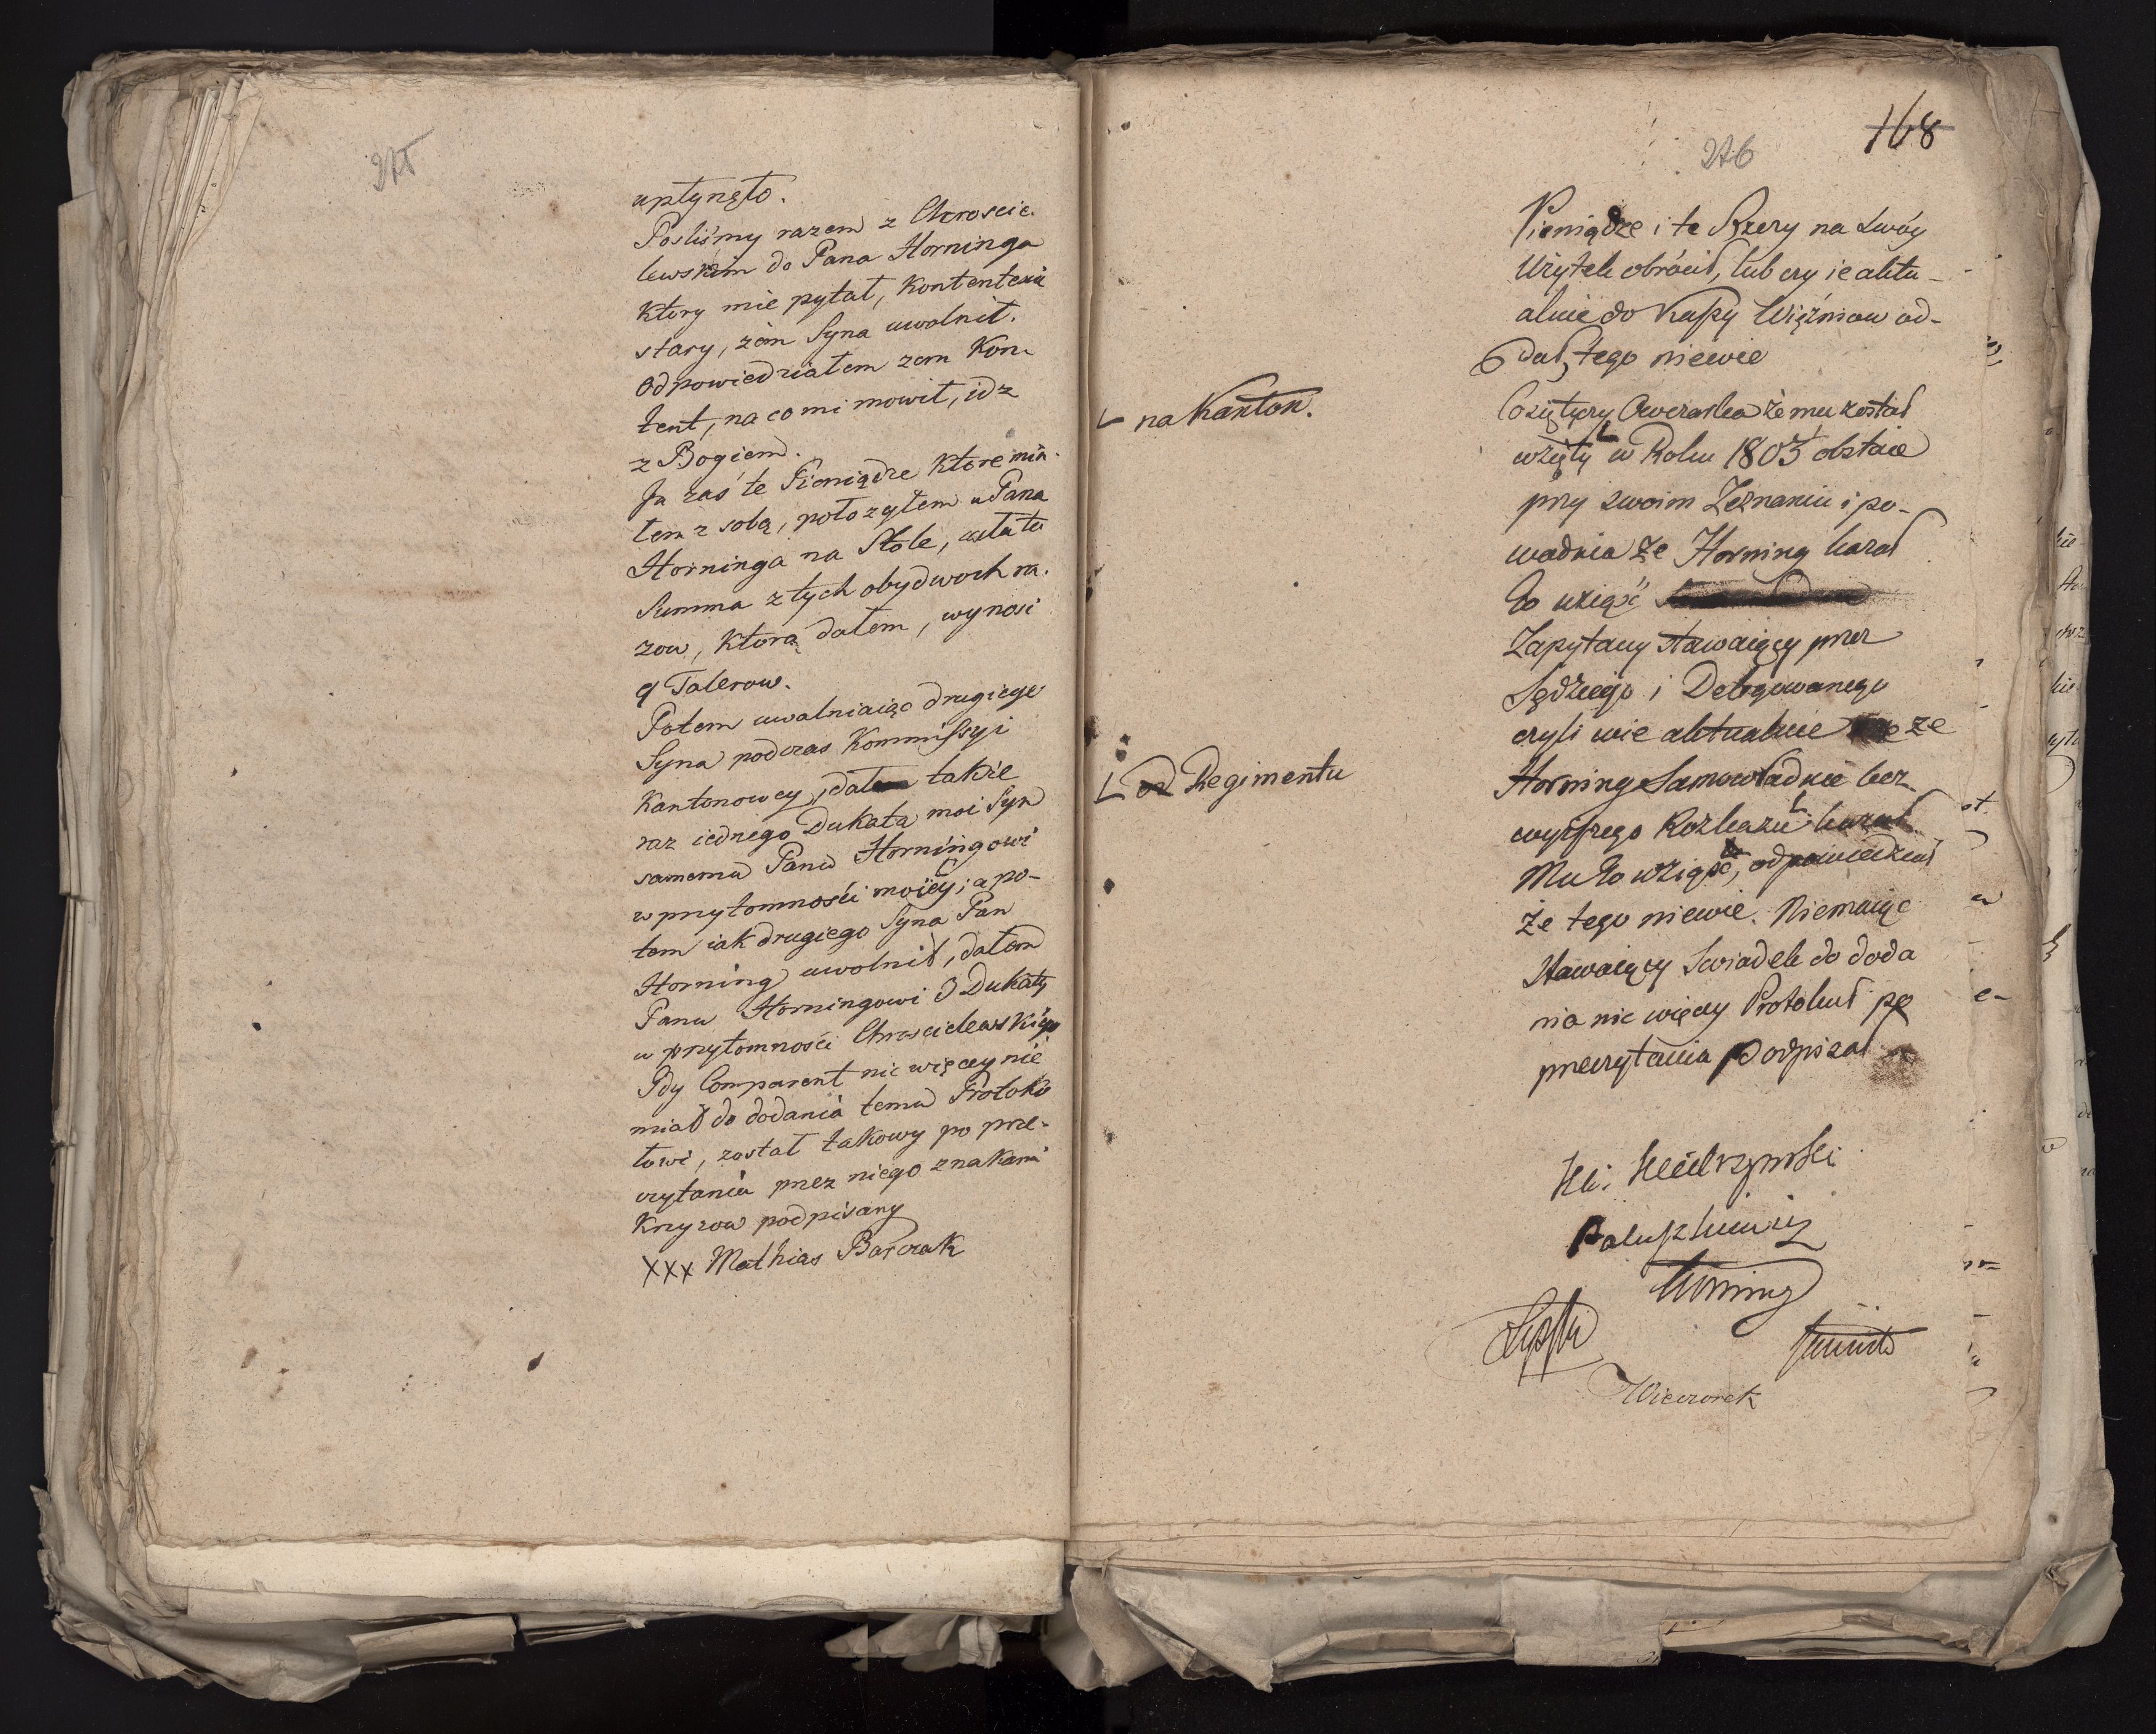 275
upłynęło.
Posliśmy razem z Chroscie
lewskim do Pana Horninga
który mie pytał, Kontenteś
stary, żem Syna uwolnił.
odpowiedziałem zem Kon-
tent, na co mi mowił, idz
z Bogiem.
Ja zaś te Pieniądze które mia-
łem z sobą, położyłem u Pana
Horninga na Stole, cała ta
Summa z tych obydwoch ra-
zow, ktorą dałem, wynosi
9 Talerow.
Potem uwalniaiąc drugiego
Syna podczas Kommissyi
Kantonowey, dał także
raz iednego Dukata moi Syn
samemu Panu Horningowi
w przytomności moiéy; a po-
tem iak drugiego Syna Pan
Horning uwolnił, dałem
Panu Horningowi 3 Dukaty
w przytomności Chroscielewskiego
Gdy Comparent nic więcey nie
miał do dodania temu Protoko
łowi, został takowy po prze-
czytaniu przez niego znakami
Krzyzow podpisany
XXX Mathias Barczak
168
276
Pieniądze i te Rzeczy na swóy
Użytek obrócił, lub czy ie aktu-
alnie do Kassy Więźniow od-
dał, tego niewie
Co się tyczy Owczarka że mu został
wzięty w Roku 1805 obstaie
przy swoim Zeznaniu i po-
wadnia że Horning kazał
Go wziąść
Zapytany stawaiący przez
Sędziego i Delegowanego
czyli wie aktualnie że
Horning Samowładnie bez
wyższego Rozkazu kazał
Mu Go wziąść, odpowiedział
Że tego niewie. Niemaiąc
stawaiący Swiadek do doda
nia nic więcey Protokuł po
przeczytaniu podpisał
na Kanton.
od Regimentu
Horning
Wieczorek